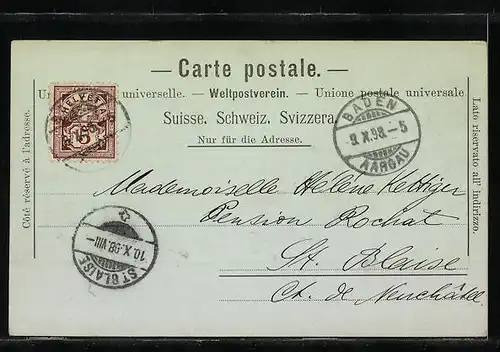 — Carte postale. —
universelle. — Weltpostverein. — Unione postale universale
Suisse. Schweiz. Svizzera.
Nur für die Adresse.
Côté réservé à l'adresse.
Lato riservato all' indirizzo.
HELVETIA
5
BADEN
9.X.98.-5
AARGAU
10.X.98.VIII-
ST BLAISE
Mademoiselle Hélène Kettiger
Pension Rochat
St. Blaise
Ct. de Neuchâtel